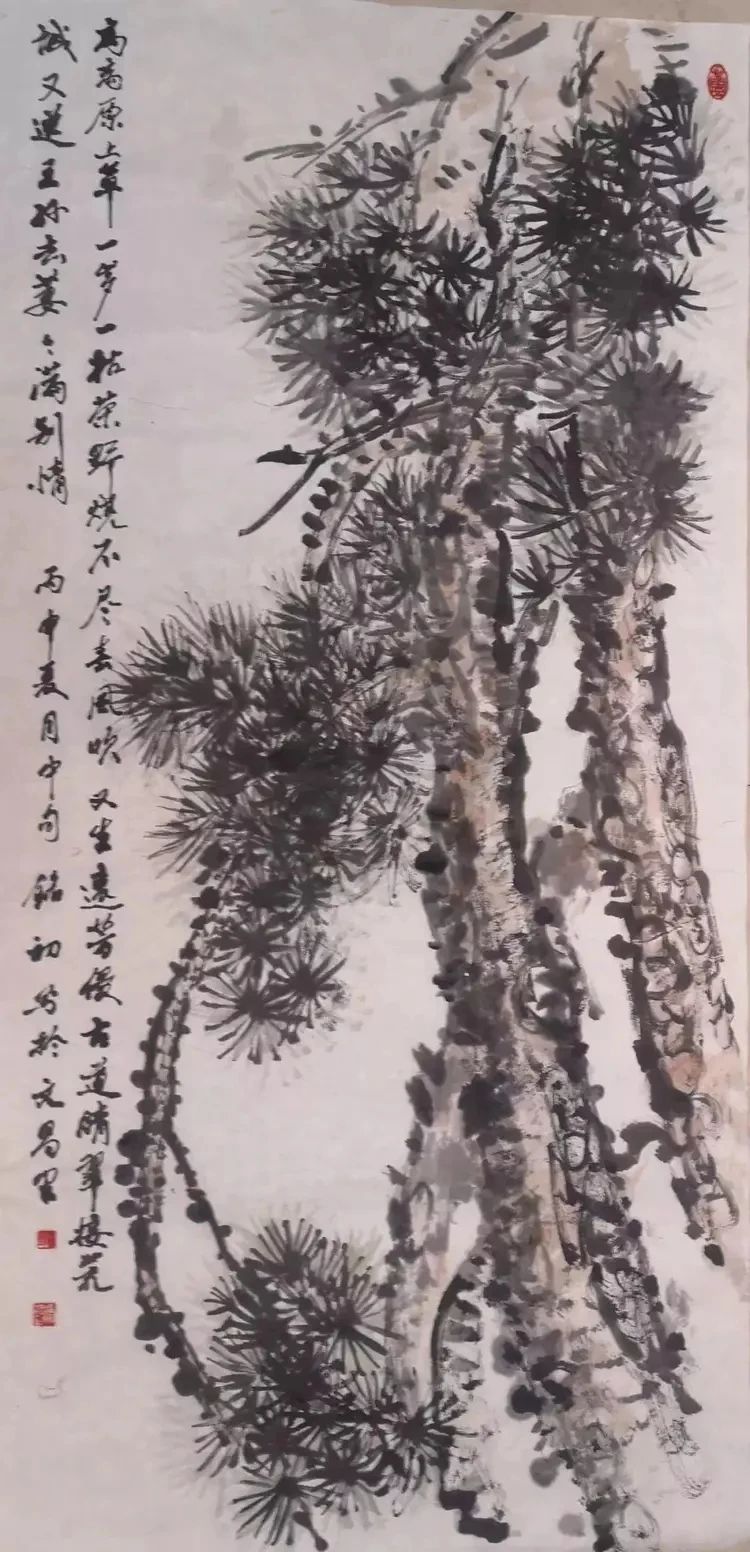 离离原上草一岁一枯荣野烧不尽春风吹又生远芳侵古道晴翠接荒
城又送王孙去萋々满别情 丙申夏月中旬 铭初写於文昌里